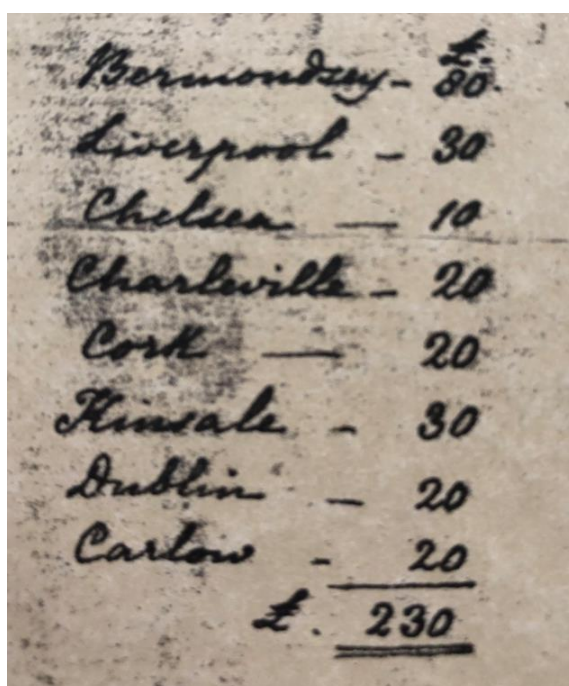 £.
Bermondsey - 80.
Liverpool - 30
Chelsea — 10
Charleville - 20
Cork — 20
Kinsale - 30
Dublin - 20
Carlow - 20
£. 230